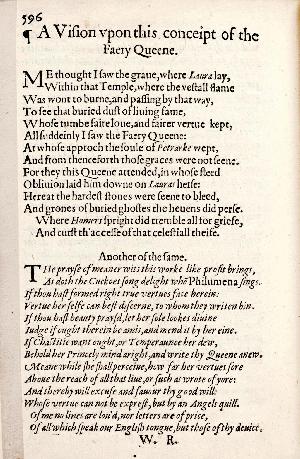 596
¶ A Vision vpon this conceipt of the
Faery Queene.
ME thought I saw the graue, where Laura lay,
Within that Temple, where the vestall flame
Was wont to burne, and passing by that way,
To see that buried dust of liuing fame,
Whose tumbe faire loue, and fairer vertue kept,
All suddeinly I saw the Faery Queene:
At whose approch the soule of Petrarke wept,
And from thenceforth those graces were not seene.
For they this Queene attended, in whose steed
Obliuion laid him downe on Lauras herse:
Hereat the hardest stones were seene to bleed,
And grones of buried ghostes the heuens did perse.
Where Homers spright did tremble all for griefe,
And curst th'accesse of that celestiall theife.
Another of the same.
THe prayse of meaner wits this worke like profit brings,
As doth the Cuckoes song delight when Philumena sings.
If thou hast formed right true vertues face herein:
Vertue her selfe can best discerne, to whom they written bin.
If thou hast beauty praysd, let her sole lookes diuine
Iudge if ought therein be amis, and mend it by her eine.
If Chastitie want ought, or Temperaunce her dew,
Behold her Princely mind aright, and write thy Queene anew.
Meane while she shall perceiue, how far her vertues sore
Aboue the reach of all that liue, or such as wrote of yore:
And thereby will excuse and fauour thy good will:
Whose vertue can not be exprest, but by an Angels quill.
Of me no lines are lou'd, nor letters are of price,
Of all which speak our English tongue, but those of thy deuice.
W. R.